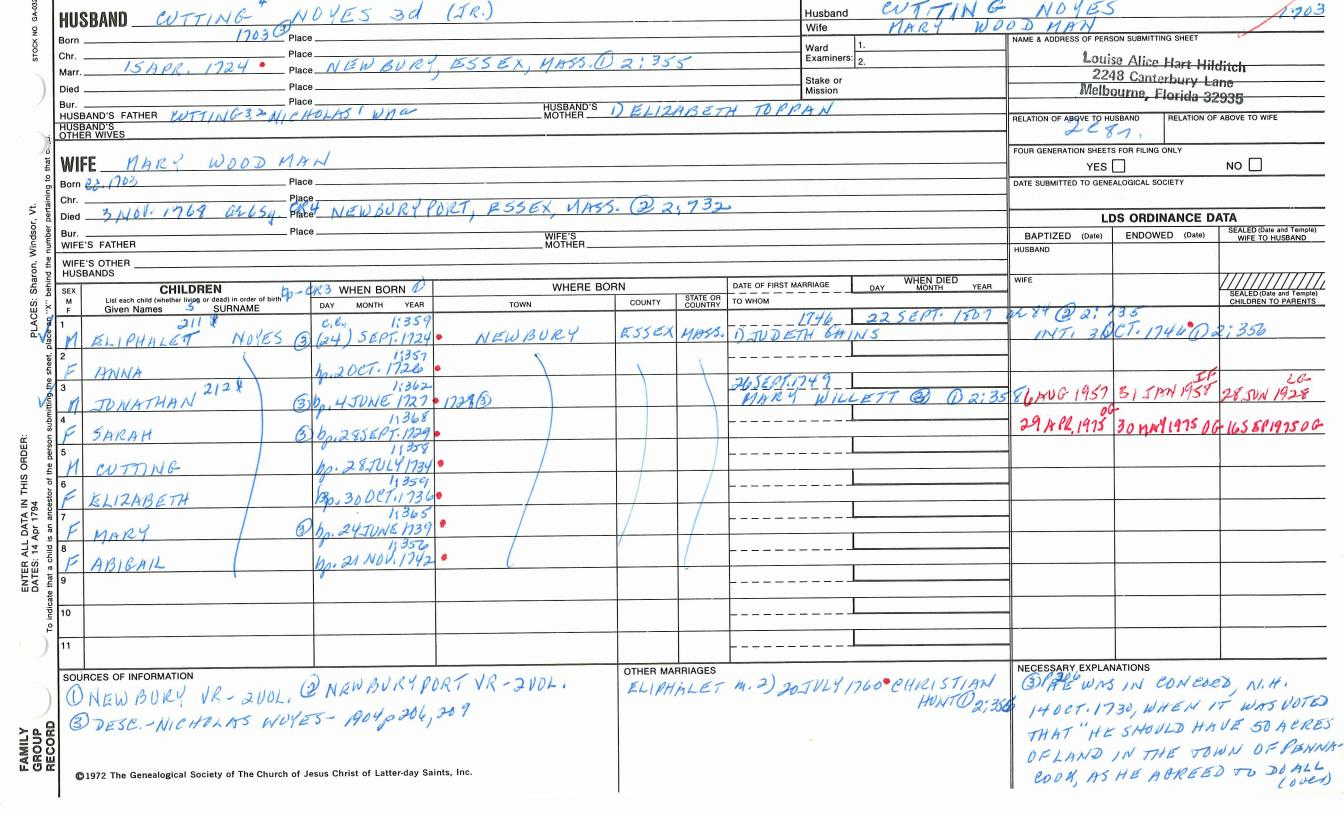 STOCK NO. GA-032
HUSBAND CUTTING 4 NOYES 3d (JR.)
Born 1703 ③ Place
Chr. Place
Marr. 15 APR. 1724 Place NEWBURY, ESSEX, MASS. ① 2:355
Died Place
Bur. Place
HUSBAND'S FATHER CUTTING 3, 2 NICHOLAS 1 HUSBAND'S MOTHER 1) ELIZABETH TOPPAN
HUSBAND'S OTHER WIVES
Husband CUTTING NOYES 1703
Wife MARY WOODMAN
Ward Examiners: 1.
2.
Stake or Mission
NAME & ADDRESS OF PERSON SUBMITTING SHEET
Louise Alice Hart Hilditch
2248 Canterbury Lane
Melbourne, Florida 32935
RELATION OF ABOVE TO HUSBAND RELATION OF ABOVE TO WIFE
2C8r.
FOUR GENERATION SHEETS FOR FILING ONLY
YES NO
DATE SUBMITTED TO GENEALOGICAL SOCIETY
WIFE MARY WOODMAN
Born 1703 Place
Chr. Place
Died 3 NOV. 1768 ae 65y CR4 Place NEWBURYPORT, ESSEX, MASS. ② 2:732
Bur. Place
WIFE'S FATHER WIFE'S MOTHER
WIFE'S OTHER HUSBANDS
LDS ORDINANCE DATA
BAPTIZED (Date) ENDOWED (Date) SEALED (Date and Temple) WIFE TO HUSBAND
HUSBAND
WIFE
SEALED (Date and Temple) CHILDREN TO PARENTS
SEX M F CHILDREN bp-CR3 WHEN BORN ① WHERE BORN DATE OF FIRST MARRIAGE WHEN DIED
List each child (whether living or dead) in order of birth
Given Names 5 SURNAME DAY MONTH YEAR TOWN COUNTY STATE OR COUNTRY TO WHOM DAY MONTH YEAR
1 211 1:359 1746 22 SEPT. 1807 ae 84 ② 2:735
M ELIPHALET NOYES ③ (24) SEPT. 1724 NEWBURY ESSEX MASS. 1) JUDETH GAINS INT. 3 OCT. 1746 ① 2:356
2 1:357
F ANNA bp. 2 OCT. 1726
3 212 1:362 26 SEPT. 1749
M JONATHAN ③ bp. 4 JUNE 1727 1728 ③ MARY WILLETT ① 2:358 6 AUG 1957 31 JAN 1958 IF 28 JUN 1928 LG
4 1:368
F SARAH ③ bp. 28 SEPT. 1729 29 APR. 1975 OG 30 MAY 1975 OG 16 SEP 1975 OG
5 1:358
M CUTTING bp. 28 JULY 1734
6 1:359
F ELIZABETH Bp. 30 OCT. 1736
7 1:365
F MARY ③ bp. 24 JUNE 1739
8 1:356
F ABIGAIL bp. 21 NOV. 1742
9
10
11
SOURCES OF INFORMATION
① NEWBURY VR - 2 VOL. ② NEWBURYPORT VR - 2 VOL.
③ DESC. - NICHOLAS NOYES - 1904 p 206, 209
©1972 The Genealogical Society of The Church of Jesus Christ of Latter-day Saints, Inc.
OTHER MARRIAGES
ELIPHALET m. 2) 20 JULY 1760 CHRISTIAN
HUNT ① 2:356
NECESSARY EXPLANATIONS
③ p206 HE WAS IN CONCORD, N.H.
14 OCT. 1730, WHEN IT WAS VOTED
THAT "HE SHOULD HAVE 50 ACRES
OF LAND IN THE TOWN OF PENNA-
COOK, AS HE AGREED TO DO ALL
(over)
ENTER ALL DATA IN THIS ORDER:
DATES: 14 Apr 1794
PLACES: Sharon, Windsor, Vt.
To indicate that a child is an ancestor of the person submitting the sheet, place an "X" behind the number pertaining to that
FAMILY
GROUP
RECORD